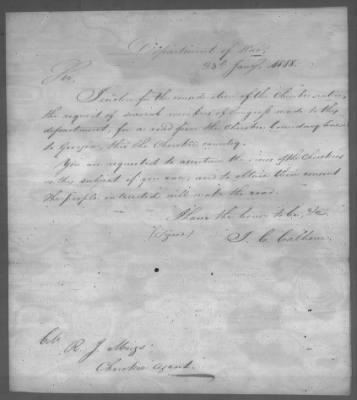 Department of War,
23d Jany. 1818.
Sir,
I inclose for the consideration of the Cherokee nation,
the request of several members of Congress made to this
department, for a road from the Cherokee boundary line
to Georgia, thro' the Cherokee country.
You are requested to ascertain the views of the Cherokees
on this subject if you can, and to obtain their consent
the people interested will make the road.
I have the honor to be, &c
(Signed) J. C. Calhoun.
Col. R. J. Meigs
Cherokee Agent.